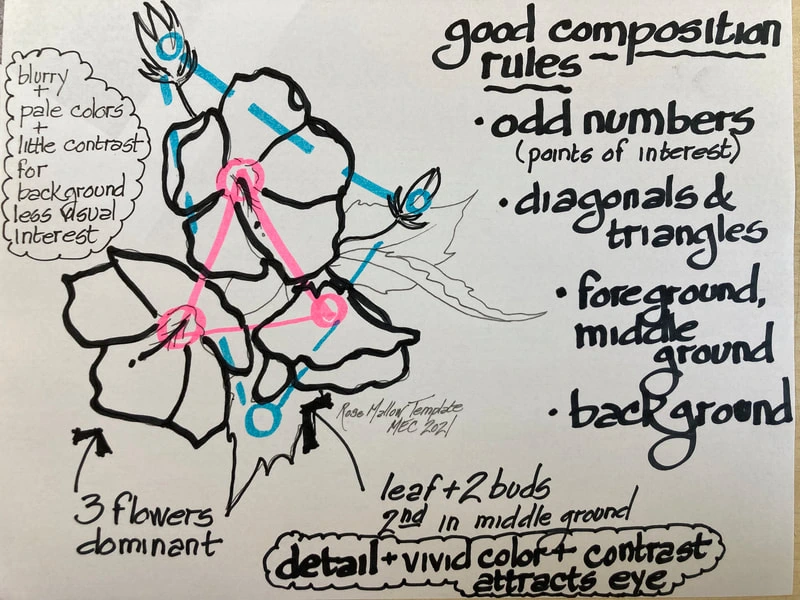 good composition
rules
• odd numbers
(points of interest)
• diagonals &
triangles
• foreground,
middle
ground
• background
blurry
+
pale colors
+
little contrast
for
background
less visual
interest
Rose Mallow Template
MEC 2021
3 flowers
dominant
leaf + 2 buds
2nd in middle ground
detail + vivid color + contrast
attracts eye